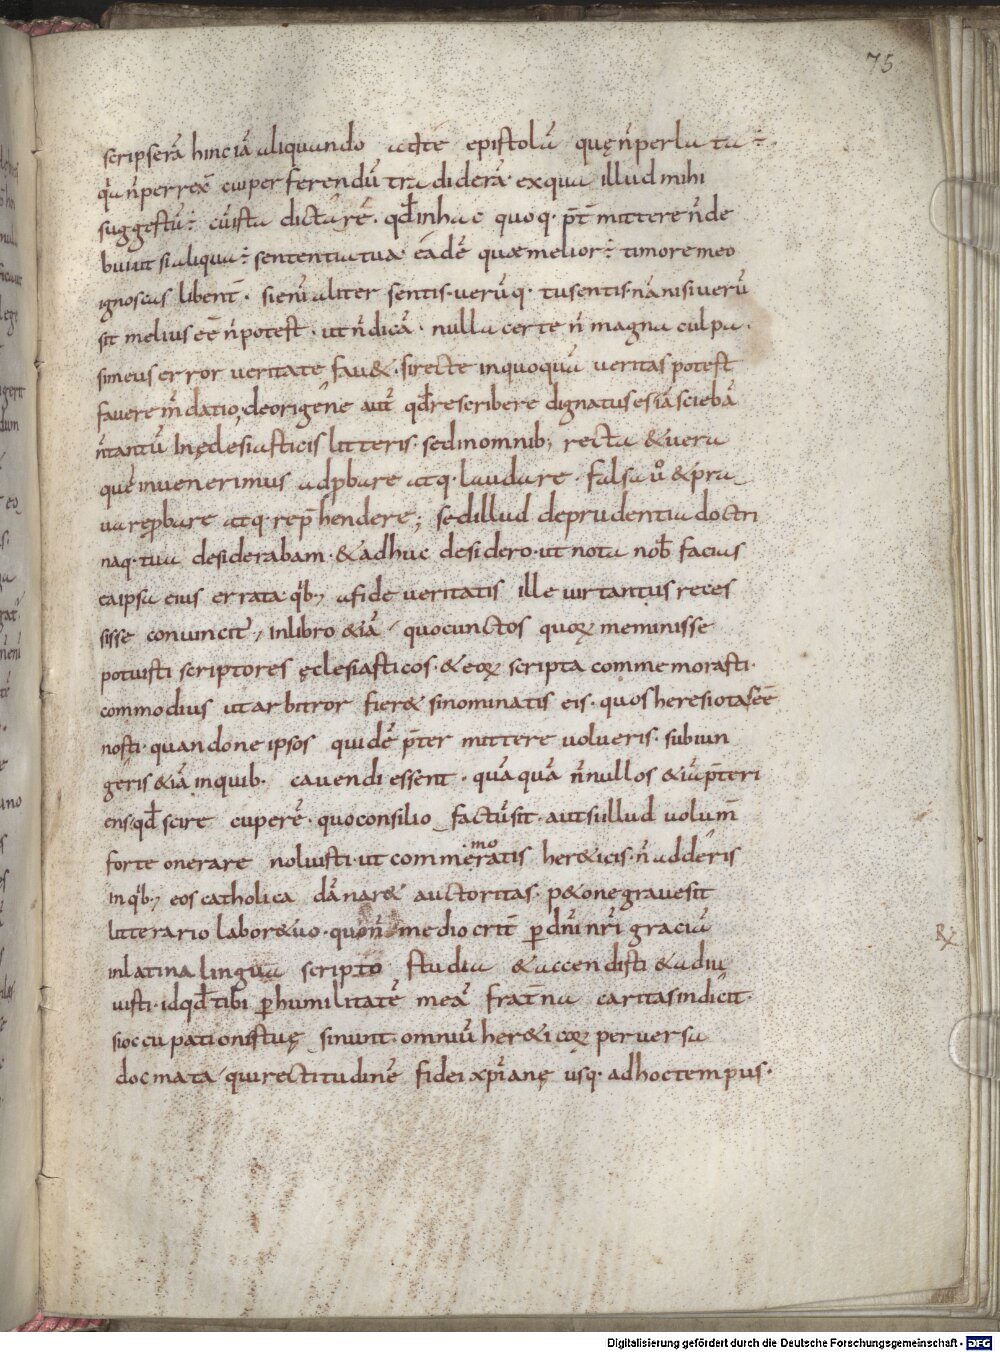 75
scripserā hinc iā aliquando ad te epistolā quę n̄ perlata ÷
q̄a n̄ perrex̄ cui perferendū tradiderā· ex qua illud mihi
suggestū ÷ cū ista dictarē· qd̄ in hac quoq· p̄t mittere n̄ de
buiut si aliqua ÷ sententia tua eadē quæ melior ÷ timore meo
ignoscas libent̄· si enī aliter sentis· verūq· tu sentis· nā nisi verū
sit melius eē n̄ potest· ut n̄ dicā· nulla certe n̄ magna culpa·
si meus error veritate fav&· si recte in quoquā veritas potest
favere m̄datio, de origene aut̄ qd̄ rescribere dignatus es iā sciebā
n̄ tantū In ęclesiasticis litteris· sed in omnib; recta & vera
que invenerimus adp̄bare atq· laudare· falsa ů & pra
va rep̄bare atq· rep̄hendere; sed illud de prudentia doctri
naq· tua desiderabam· & adhuc desidero· ut nota nob̄ facias
ea ipsa eius errata q̄b; a fide veritatis ille vir tantus reces
sisse convincit̄, in libro &iā quo cunctos quoꝝ meminisse
potuisti scriptores ęclesiasticos· & eoꝝ scripta commemorasti·
commodius ut arbitror fier& si nominatis eis· quos heresiotas eē
nosti· quando ne ipsos quidē p̄termittere volueris· subiun
geris &iā in quib· cavendi essent· quā quā n̄nullos &iā p̄teri
ens· qd̄ scire cuperē· quo consilio factū sit· aut si illud volum̄
forte onerare noluisti· ut commemoratis her&icis· n̄ adderis
in q̄b; eos catholica dānar& auctoritas· p&o ne grave sit
litterario labor& vo· quō n̄ mediocrit̄ p̄ dn̄i nr̄i graciā
in latina lingua scripto studia & accendisti & adiu
visti· id qd̄ tibi p̄ humilitatē meā frat̄na caritas indicit·
si occupationis tuę sinunt· omniū her&icoꝝ perversa
docmata qui rectitudinē fidei xp̄ianę usq· ad hoc tempus·
R
Digitalisierung gefördert durch die Deutsche Forschungsgemeinschaft - DFG